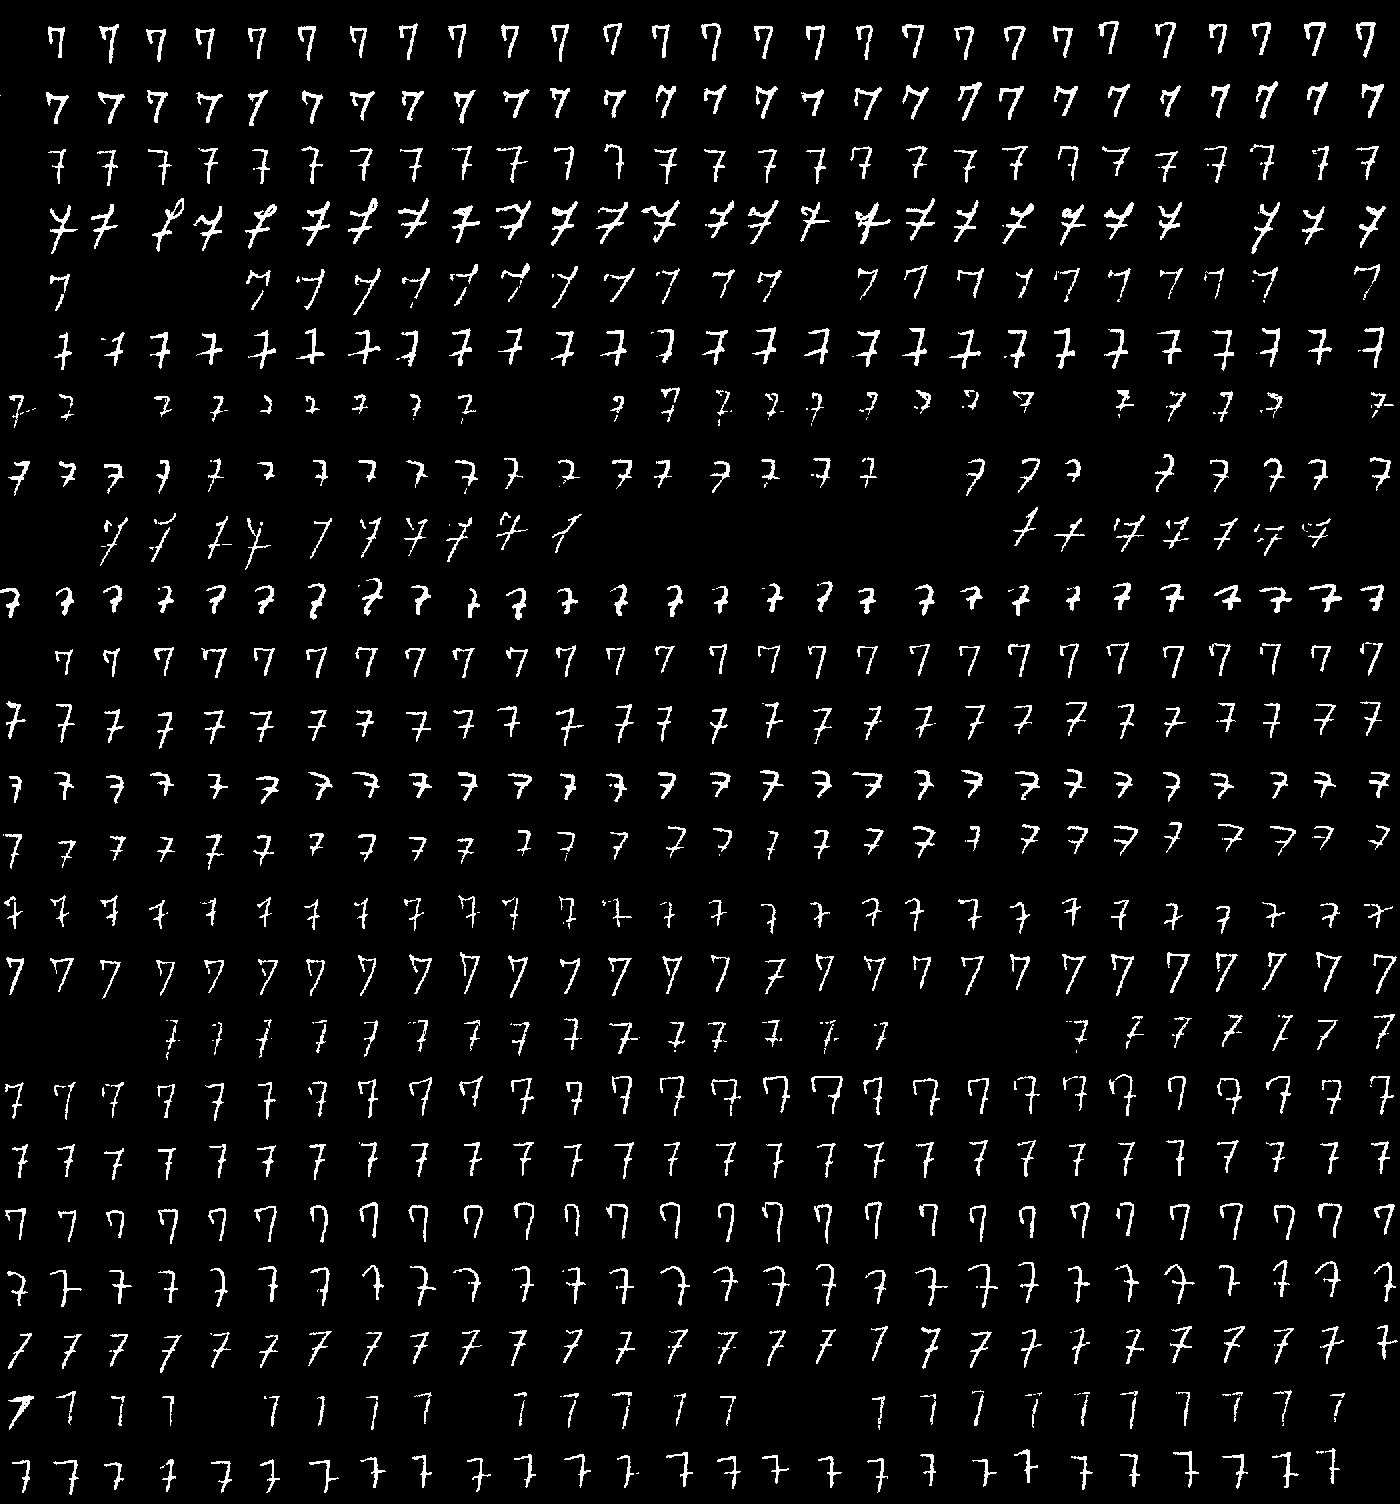 7 7 7 7 7 7 7 7 7 7 7 7 7 7 7 7 7 7 7 7 7 7 7 7 7 7 7
7 7 7 7 7 7 7 7 7 7 7 7 7 7 7 7 7 7 7 7 7 7 7 7 7 7 7
7 7 7 7 7 7 7 7 7 7 7 7 7 7 7 7 7 7 7 7 7 7 7 7 7 7 7
7 7 7 7 7 7 7 7 7 7 7 7 7 7 7 7 7 7 7 7 7 7 7 7 7 7
7 7 7 7 7 7 7 7 7 7 7 7 7 7 7 7 7 7 7 7 7 7
7 7 7 7 7 7 7 7 7 7 7 7 7 7 7 7 7 7 7 7 7 7 7 7 7 7 7
7 7 7 7 7 7 7 7 7 7 7 7 7 7 7 7 7 7 7 7 7 7 7
7 7 7 7 7 7 7 7 7 7 7 7 7 7 7 7 7 7 7 7 7 7 7 7 7 7
7 7 7 7 7 7 7 7 7 7 7 7 7 7 7 7 7
7 7 7 7 7 7 7 7 7 7 7 7 7 7 7 7 7 7 7 7 7 7 7 7 7 7 7 7
7 7 7 7 7 7 7 7 7 7 7 7 7 7 7 7 7 7 7 7 7 7 7 7 7 7 7
7 7 7 7 7 7 7 7 7 7 7 7 7 7 7 7 7 7 7 7 7 7 7 7 7 7 7 7
7 7 7 7 7 7 7 7 7 7 7 7 7 7 7 7 7 7 7 7 7 7 7 7 7 7 7 7
7 7 7 7 7 7 7 7 7 7 7 7 7 7 7 7 7 7 7 7 7 7 7 7 7 7 7 7
7 7 7 7 7 7 7 7 7 7 7 7 7 7 7 7 7 7 7 7 7 7 7 7 7 7 7 7
7 7 7 7 7 7 7 7 7 7 7 7 7 7 7 7 7 7 7 7 7 7 7 7 7 7 7 7
7 7 7 7 7 7 7 7 7 7 7 7 7 7 7 7 7 7 7 7 7 7
7 7 7 7 7 7 7 7 7 7 7 7 7 7 7 7 7 7 7 7 7 7 7 7 7 7 7 7
7 7 7 7 7 7 7 7 7 7 7 7 7 7 7 7 7 7 7 7 7 7 7 7 7 7 7 7
7 7 7 7 7 7 7 7 7 7 7 7 7 7 7 7 7 7 7 7 7 7 7 7 7 7 7 7
7 7 7 7 7 7 7 7 7 7 7 7 7 7 7 7 7 7 7 7 7 7 7 7 7 7 7 7
7 7 7 7 7 7 7 7 7 7 7 7 7 7 7 7 7 7 7 7 7 7 7 7 7 7 7 7
7 7 7 7 7 7 7 7 7 7 7 7 7 7 7 7 7 7 7 7 7 7 7
7 7 7 7 7 7 7 7 7 7 7 7 7 7 7 7 7 7 7 7 7 7 7 7 7 7 7